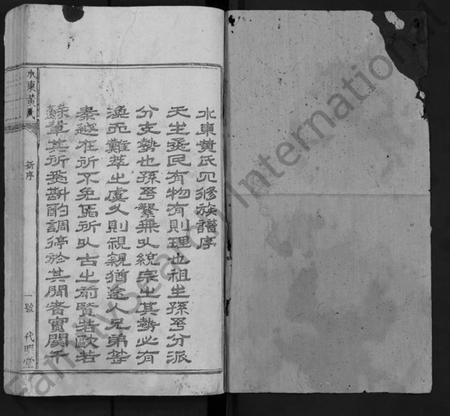 水東黃氏四修族譜序
天生烝民有物有則理也祖生孫子分派
分支勢也孫子繁乘以統宗生其勢必有
渙而難萃之虞久則視親猶途人兄弟等
秦越在所不免焉所以古之前賢若歐若
蘇輩其所為斟酌調停於其間者實關千
水東黃氏
新序
一號
代興堂
FamilySearch International